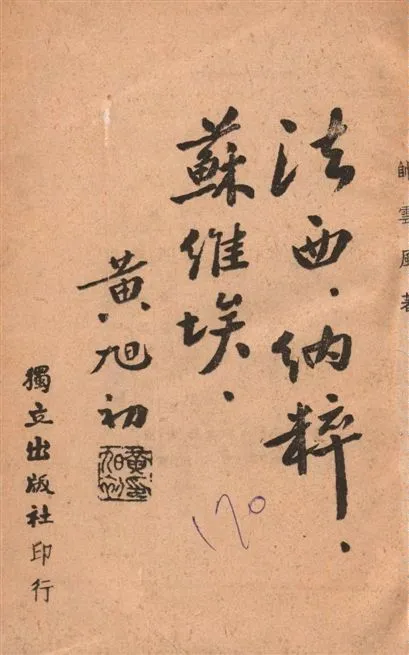 帥雲風著
法西·納粹·
蘇維埃·
黃旭初
獨立出版社印行
170